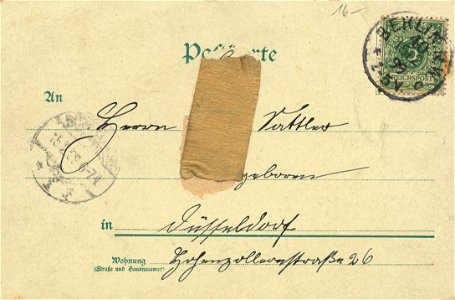 16-
Postkarte
BERLIN
5
REICHSPOST
An
Herrn Sattler
geboren
in Düsseldorf
Wohnung Hohenzollernstraße 26
(Straße und Hausnummer)